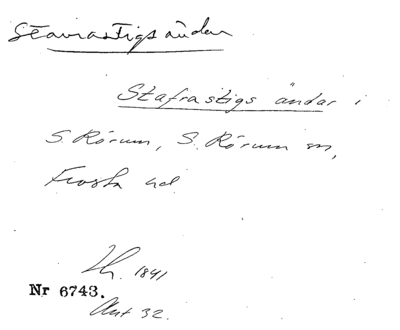 Stavrastigsändar
Stafrastigs ändar i
S. Rörum, S. Rörum sn,
Frosta hd
Lh. 1841
Nr 6743.
Akt 32.